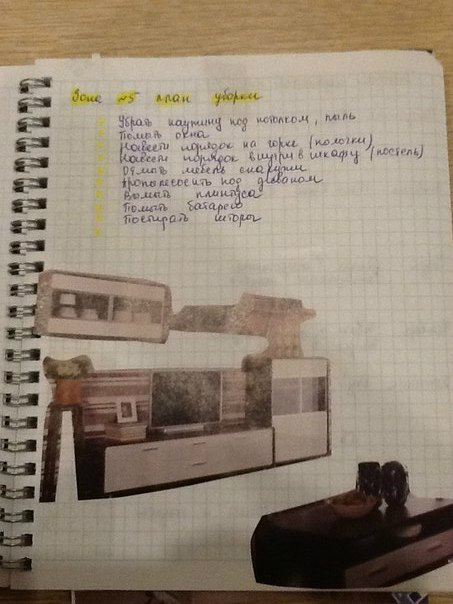 Зона №5 план уборки
Убрать паутину под потолком, пыль
Помыть окна
Навести порядок на горке (полочки)
Навести порядок внутри в шкафу (постель)
Отмыть мебель снаружи
Пропылесосить под диваном
Вымыть плинтуса
Помыть батарею
Постирать шторы